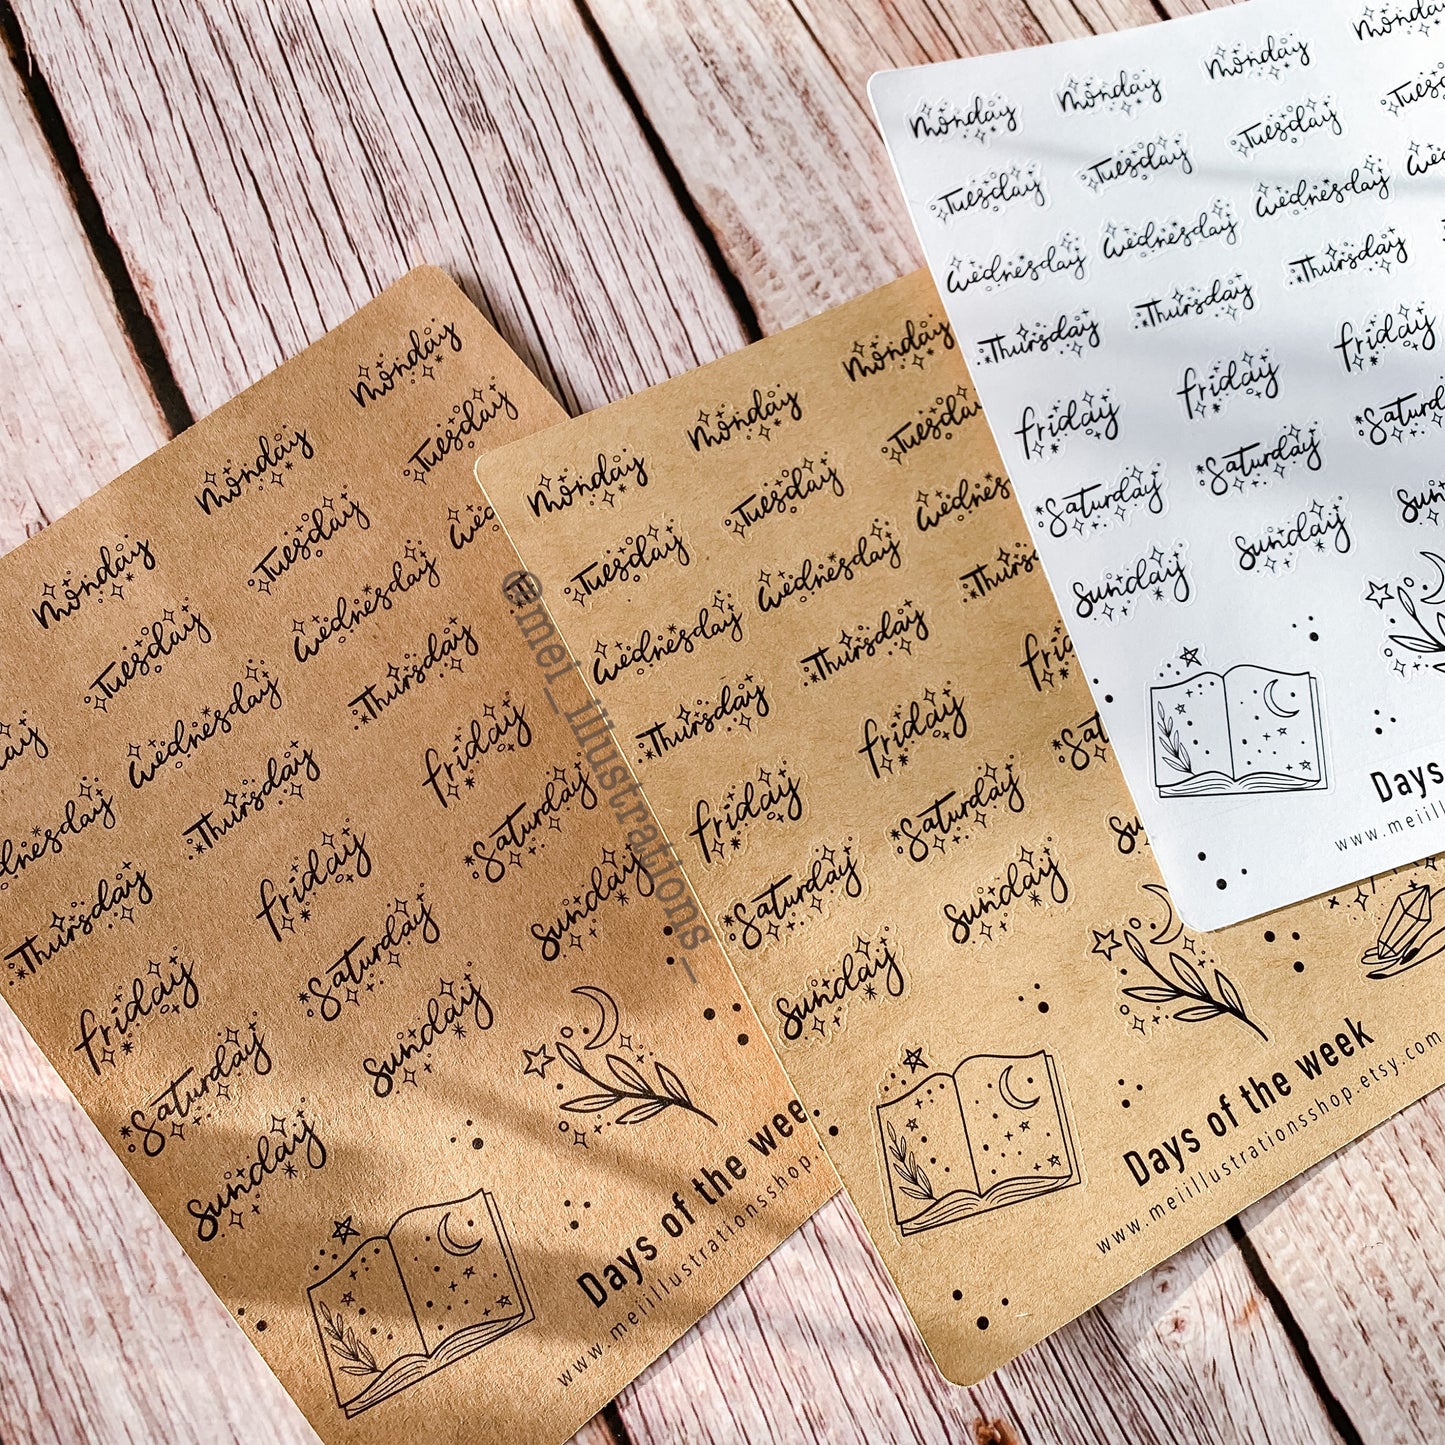 Monday Monday Monday
Tuesday Tuesday Tuesday
Wednesday Wednesday
Thursday Thursday
Friday Friday Friday
Saturday Saturday Saturday
Sunday Sunday Sunday
Days of the wee
www.meiillustrationsshop.
Monday Monday Monday
Tuesday Tuesday Tuesday
Wednesday Wednesday Wednes
Thursday Thursday Thurs
Friday Friday Fri
Saturday Saturday Sat
Sunday Sunday Su
Days of the week
www.meiillustrationsshop.etsy.com
Monday Monday Monday
Tuesday Tuesday Tuesd
Wednesday Wednesday Wednesday We
Thursday Thursday Thursday
Friday Friday Friday
Saturday Saturday Saturd
Sunday Sunday Sun
Days
www.meiill
@mei_illustrations_